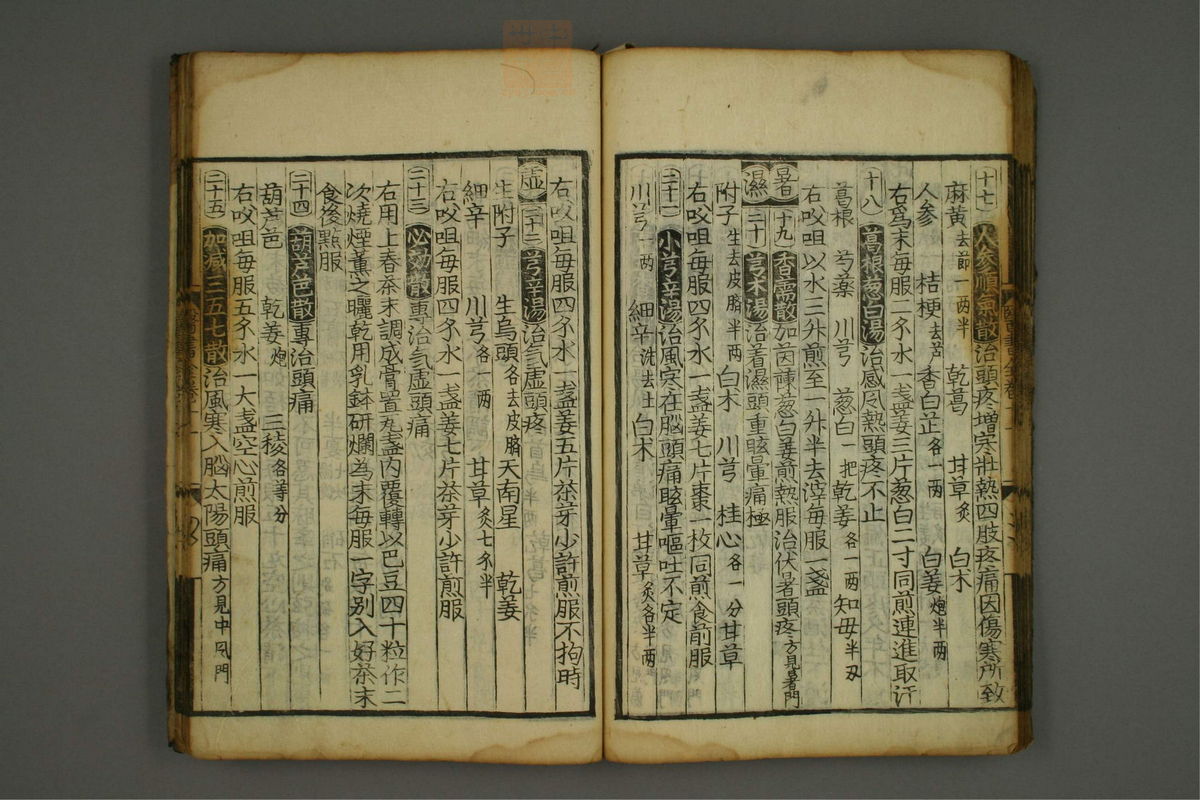 十七 人參順氣散治頭疼增寒壯熱四肢疼痛因傷寒所致
麻黃去節一兩半 乾葛 甘草炙 白木
人參 桔梗去苦 香白芷各一兩 白姜炮半兩
右爲末每服二㕮水一盞姜三片葱白二寸同煎連進取汗
十八 葛根葱白湯治感风熱頭疼不止
葛根 芍藥 川芎 葱白一把 乾姜各一兩 知母半刄
右㕮咀以水三升煎至一升半去滓每服一盞
暑 十九 香薷散加茵蔯葱白姜煎熱服治伏暑頭疼方見暑門
濕 二十 芎术湯治着濕頭重眩暈痛極
附子生去皮臍半兩 白术 川芎 桂心各一分 甘草
右㕮咀每服四㕮水一盞姜七片棗一枚同煎食前服
二十一 小芎辛湯治風寒在腦頭痛眩暈嘔吐不定
川芎一兩 細辛洗去土 白术 甘草炙各半兩
右㕮咀每服四㕮水一盞姜五片茶芽少許煎服不拘時
虛 二十二 芎辛湯治氣虛頭疼
生附子 生烏頭各去皮臍 天南星 乾姜
細辛 川芎各一兩 甘草炙七㕮半
右㕮咀每服四㕮水一盞姜七片茶芽少許煎服
二十三 必効散專治氣虛頭痛
右用上春茶末調成膏置瓦盞內覆轉以巴豆四十粒作二
次燒煙薰之曬乾用乳鉢研爛為末每服一字别入好茶末
食後㸃服
二十四 葫芦巴散專治頭痛
葫芦芭 乾姜炮 三稜各等分
右㕮咀每服五㕮水一大盞空心煎服
二十五 加减三五七散治風寒入腦太陽頭痛方見中风門